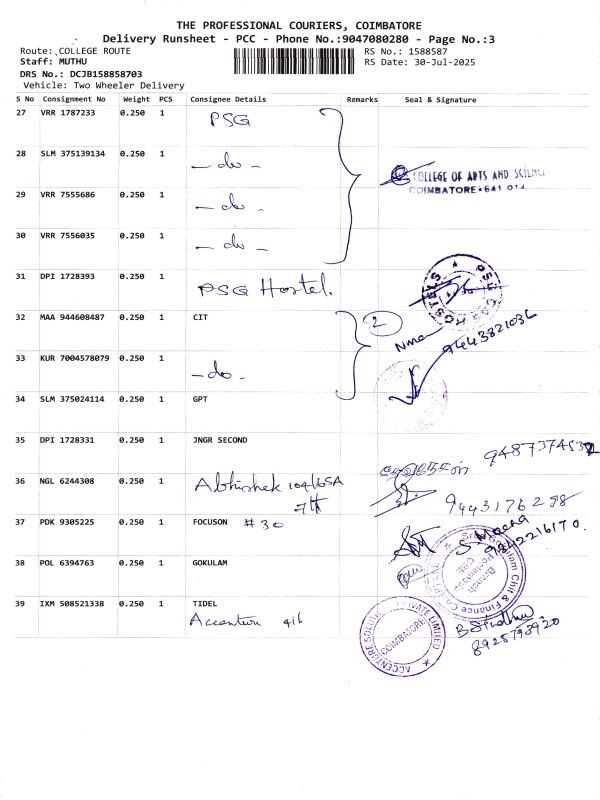 THE PROFESSIONAL COURIERS, COIMBATORE
Delivery Runsheet - PCC - Phone No.:9047080280 - Page No.:3
Route: COLLEGE ROUTE
RS No.: 1588587
Staff: MUTHU
RS Date: 30-Jul-2025
DRS No.: DCJB158858703
Vehicle: Two Wheeler Delivery
S No Consignment No Weight PCS Consignee Details Remarks Seal & Signature
27 VRR 1787233 0.250 1 PSG
28 SLM 375139134 0.250 1 - do -
COLLEGE OF ARTS AND SCIENCE
COIMBATORE - 641 014
29 VRR 7555686 0.250 1 - do -
30 VRR 7556035 0.250 1 - do -
31 DPI 1728393 0.250 1 PSG Hostel.
HOSTELS
32 MAA 944608487 0.250 1 CIT 2
9443821036
33 KUR 7004578079 0.250 1 - do -
34 SLM 375024114 0.250 1 GPT
35 DPI 1728331 0.250 1 JNGR SECOND
36 NGL 6244308 0.250 1 Abhishek 104/6SA
7th
9443176298
37 PDK 9305225 0.250 1 FOCUSON #30
S Meena
9842216170.
38 POL 6394763 0.250 1 GOKULAM
Chit & Finance Co.
Branch
39 IXM 508521338 0.250 1 TIDEL
Accenture 4th
PRIVATE LIMITED
COIMBATORE
ACCENTURE
B Sindhu
8925793920